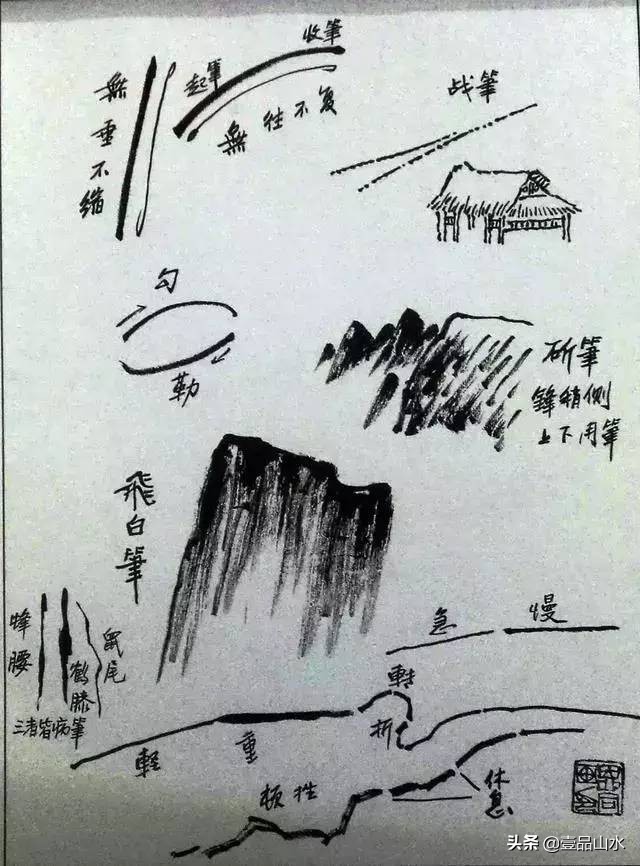 收筆
起筆
無往不复
無垂不縮
战筆
勾
勒
斫筆
鋒稍侧
上下用筆
飛白筆
蜂腰
鶴膝
鼠尾
三者皆病筆
急
慢
轉
折
輕
重
顿挫
休息
头条 @壹品山水